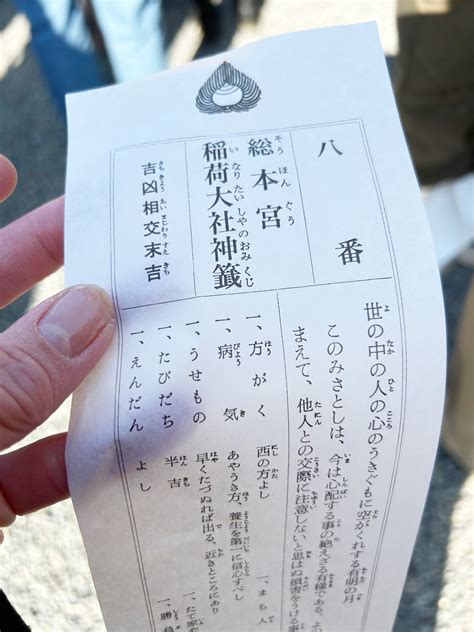 八番
総本宮
稲荷大社神籤
吉凶相交末吉
世の中の人の心のうきぐもに空がくれする有明の月
このみさとしは、今は心配する事の絶えざる有様である、よ
まえて、他人との交際に注意しないと思はぬ損害をうける事
一、方がく 西の方よし
一、病気 あやうき方、養生を第一に信心すべし
一、うせもの 早くたづぬれば出る、近きところにあり
一、たびだち 半吉
一、えんだん よし
一、まち人
一、たて家
一、勝負